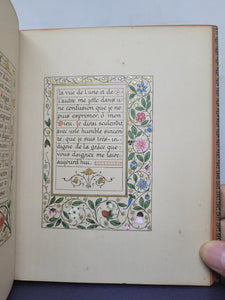 la vue de l'une et de
l'autre me jette dans u
ne confusion que je ne
puis exprimer, ô mon
Dieu. Je dirai seulemt
avec une humble sincéri
té, que je suis très-in
digne de la grâce que
vous daignez me faire
aujourd'hui.